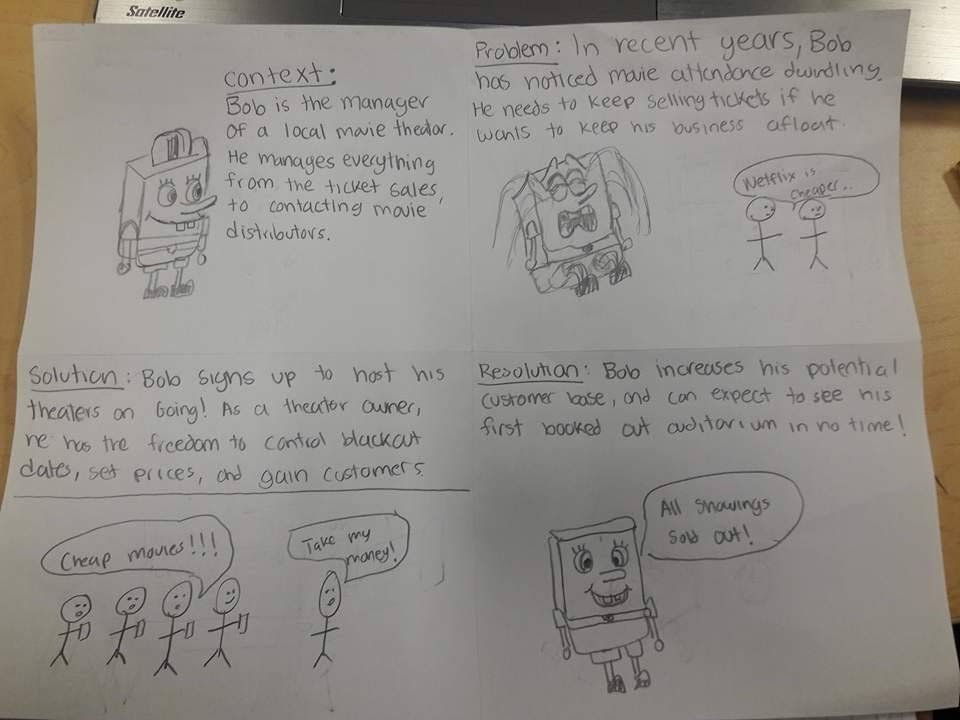 Satellite
Context:
Bob is the manager
of a local movie theator.
He manages everything
from the ticket sales,
to contacting movie
distributors.
Problem: In recent years, Bob
has noticed movie attendance dwindling.
He needs to keep selling tickets if he
wants to keep his business afloat.
Netflix is
cheaper..
Solution: Bob signs up to host his
theaters on Going! As a theator owner,
he has the freedom to control blackout
dates, set prices, and gain customers.
Cheap movies!!!
Take my
money!
Resolution: Bob increases his potential
customer base, and can expect to see his
first booked out auditorium in no time!
All showings
sold out!